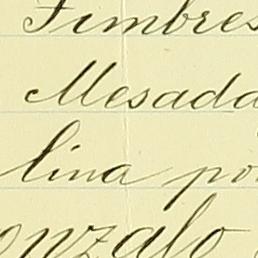 Timbres
Mesada
lina por
onzalo